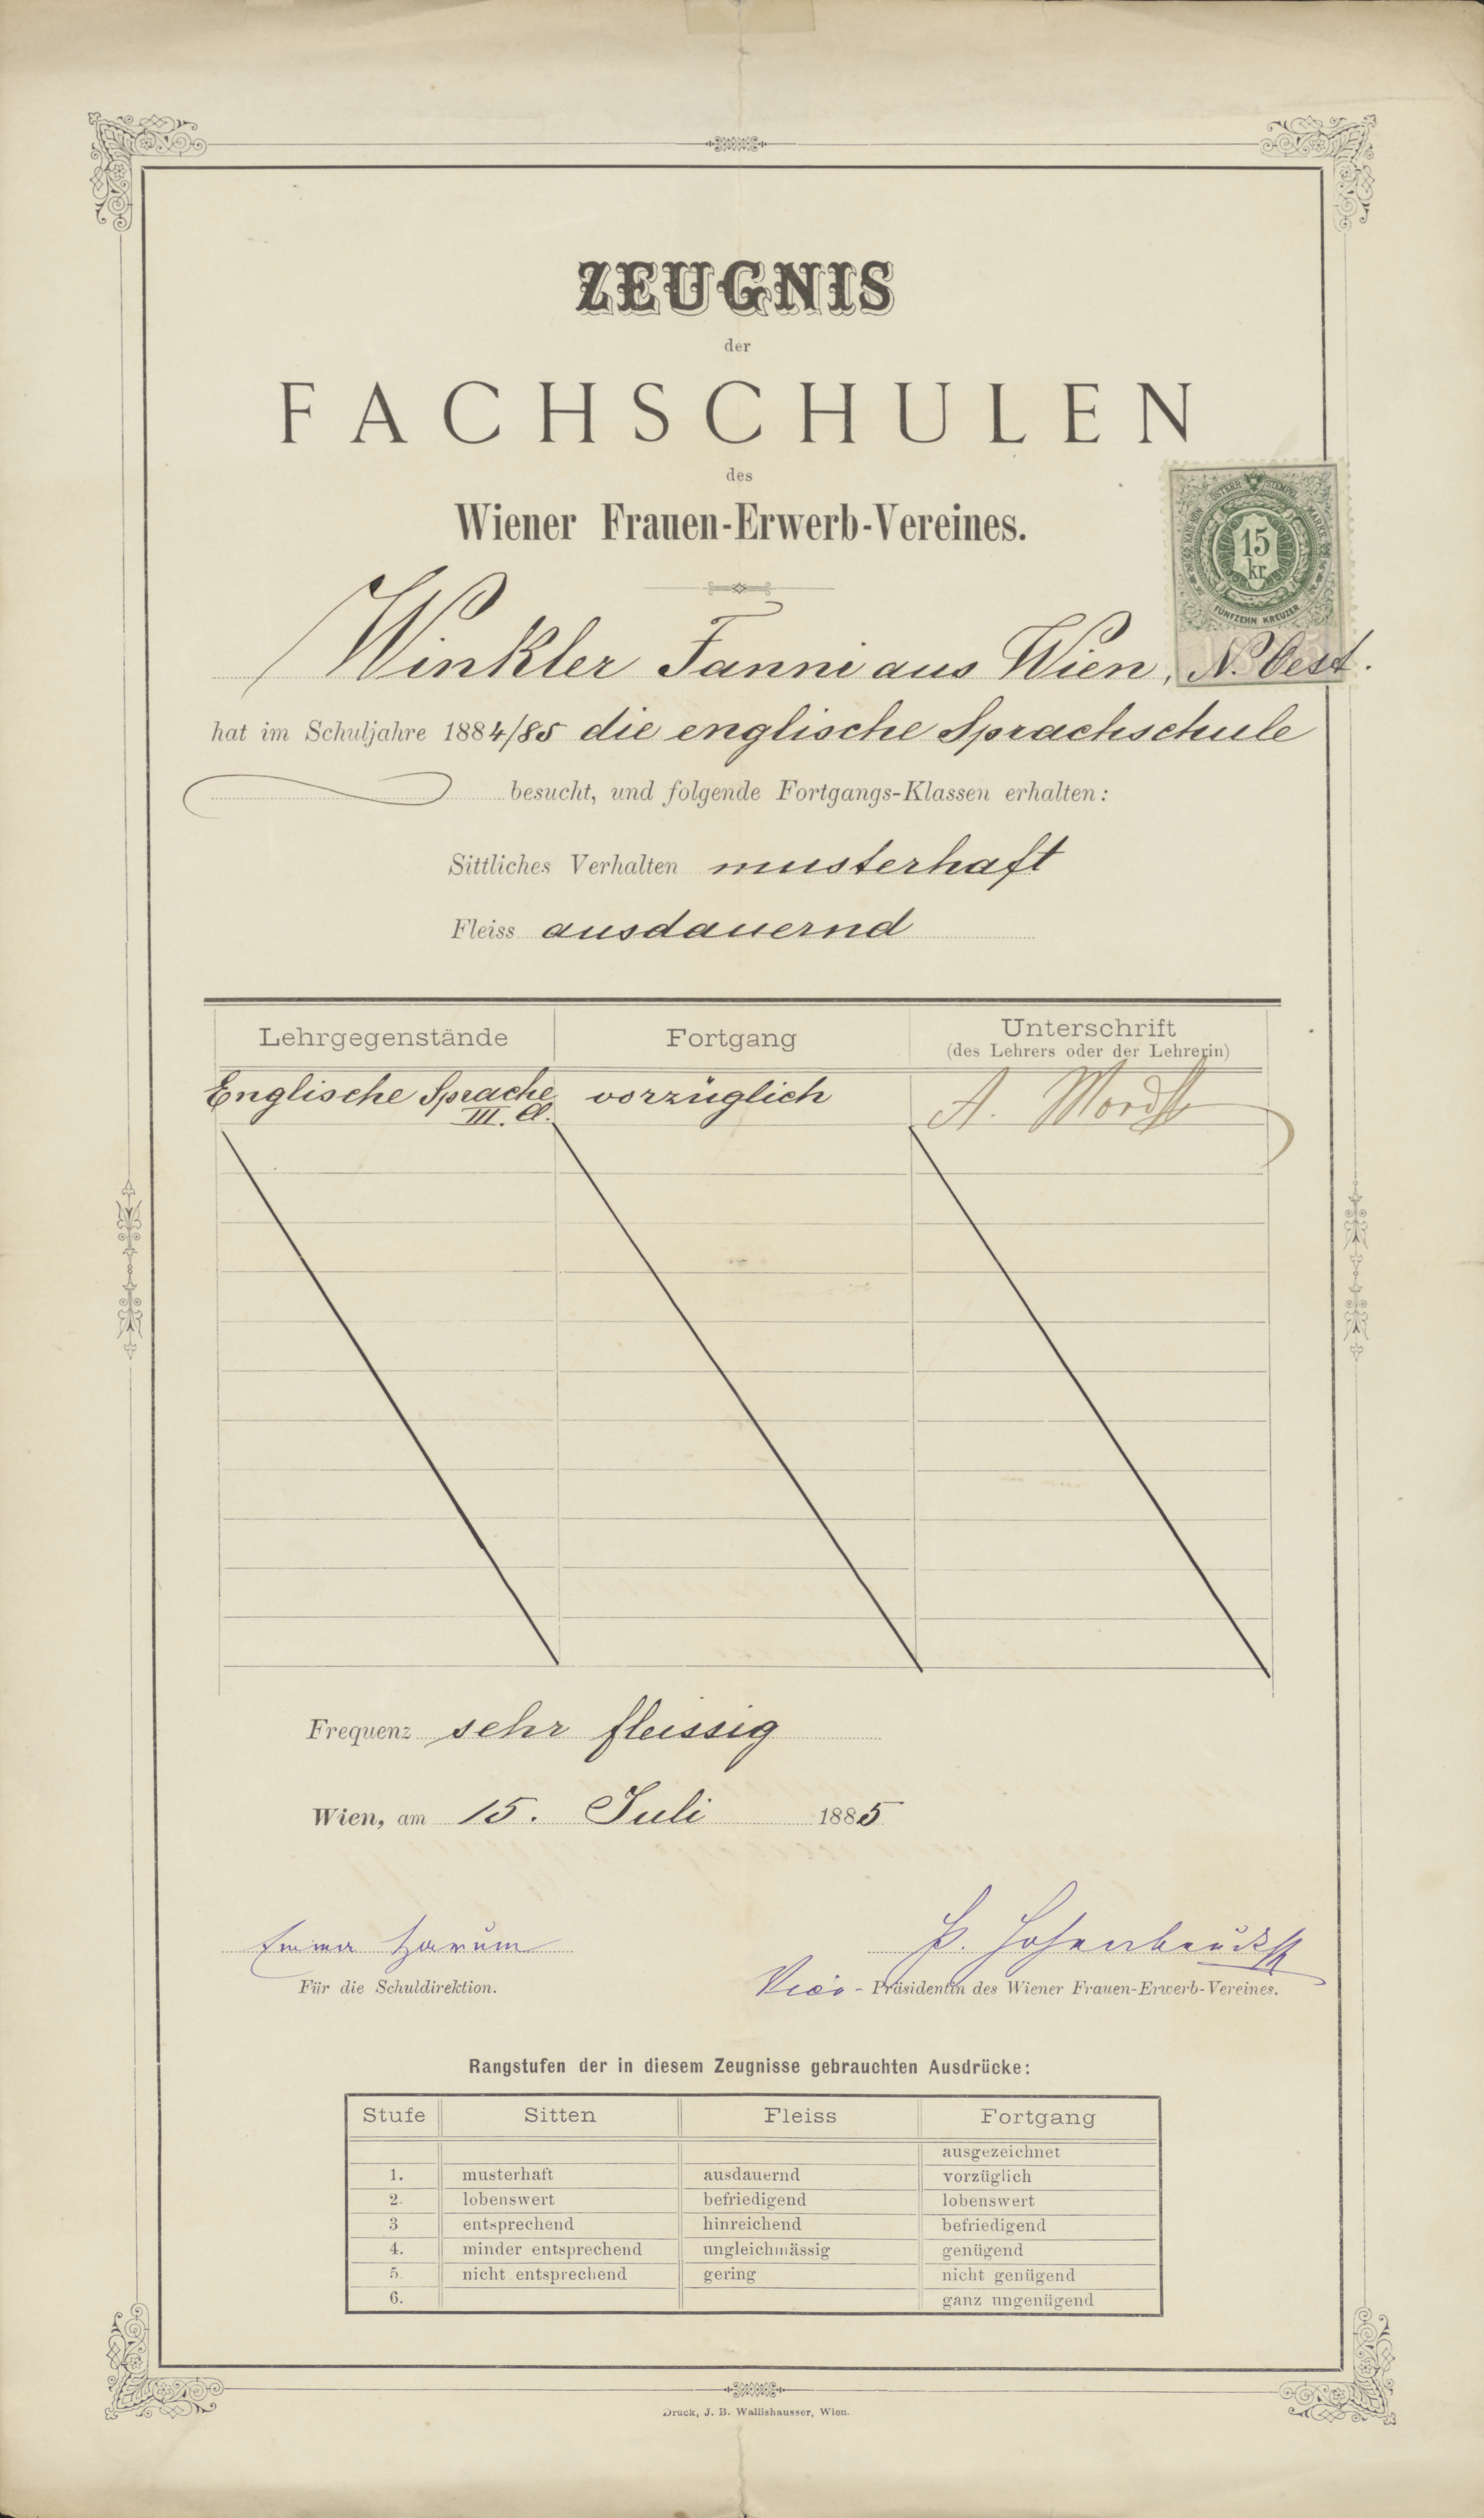 ZEUGNIS
der
FACHSCHULEN
des
Wiener Frauen-Erwerb-Vereines.
15
kr
FÜNFZEHN KREUZER
Winkler Fanni aus Wien, N. Oest.
hat im Schuljahre 1884/85 die englische Sprachschule
besucht, und folgende Fortgangs-Klassen erhalten:
Sittliches Verhalten musterhaft
Fleiss ausdauernd
Lehrgegenstände Fortgang Unterschrift
(des Lehrers oder der Lehrerin)
Englische Sprache vorzüglich A.
III. Cl.
Frequenz sehr fleissig
Wien, am 15. Juli 1885
Emma Harum
Für die Schuldirektion. Vice-Präsidentin des Wiener Frauen-Erwerb-Vereines.
Rangstufen der in diesem Zeugnisse gebrauchten Ausdrücke:
Stufe Sitten Fleiss Fortgang
ausgezeichnet
1. musterhaft ausdauernd vorzüglich
2. lobenswert befriedigend lobenswert
3 entsprechend hinreichend befriedigend
4. minder entsprechend ungleichmässig genügend
5. nicht entsprechend gering nicht genügend
6. ganz ungenügend
Druck, J. B. Wallishausser, Wien.